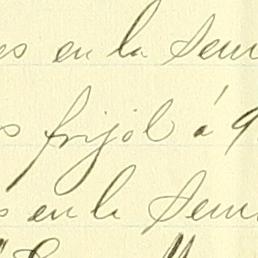 es en la Sem
s frijol á 9
s en la Sem